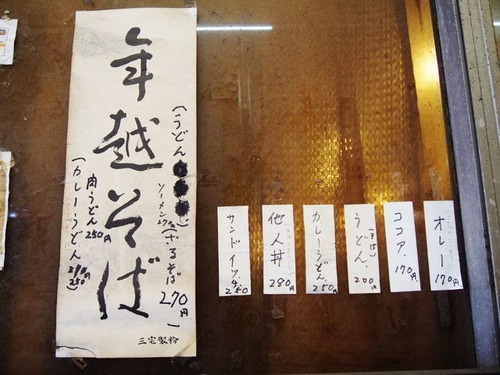 年越そば
(うどん
ソーメン270
(ざるそば
270円
肉うどん
250円
(カレーうどん
250
三宅製粉
オレー
170円
ココア.
170円
(そば)
うどん.
200円
カレーうどん.
250円
他人丼
280円
サンドイッチ
250